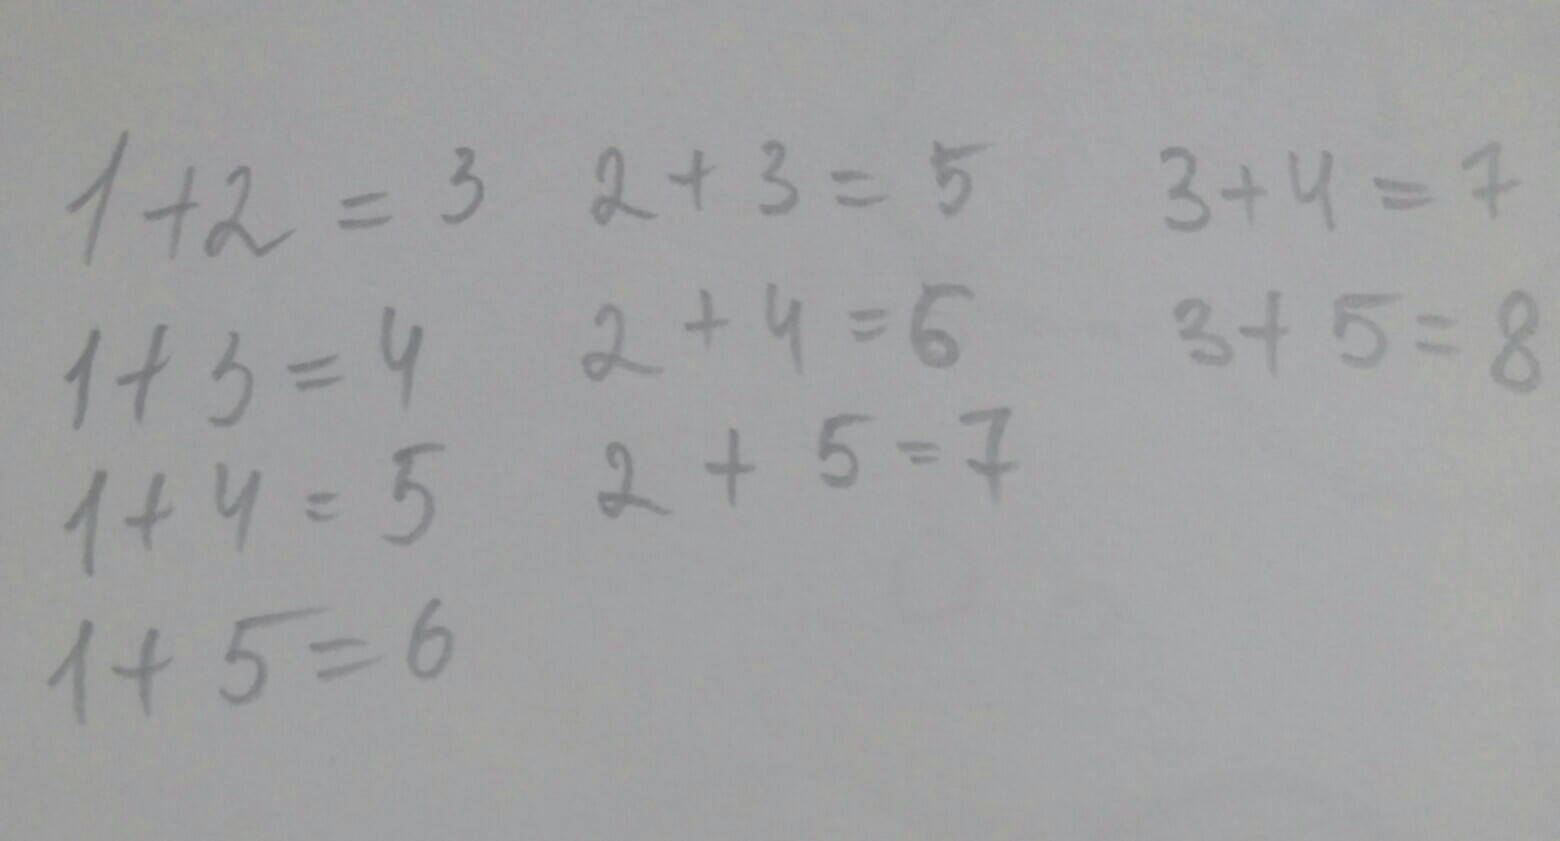 1+2=3 2+3=5 3+4=7
1+3=4 2+4=6 3+5=8
1+4=5 2+5=7
1+5=6